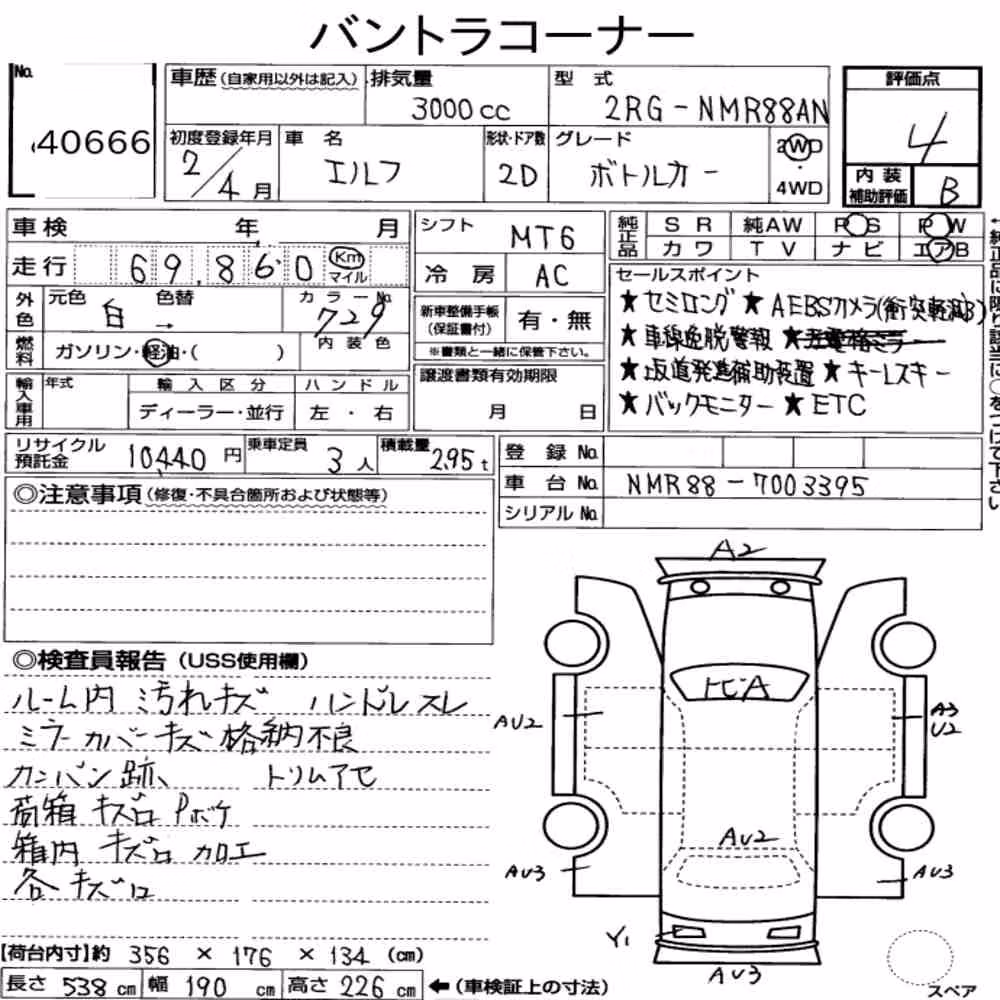 バントラコーナー
No. 40666
車歴(自家用以外は記入) 排気量 3000cc 型式 2RG-NMR88AN
初度登録年月 2/4月 車名 エルフ 形状・ドア数 2D グレード ボトルカー 2WD・4WD
評価点 4
内装補助評価 B
車検 年 月
走行 69,860 Km マイル
シフト MT6
冷房 AC
純正品 SR 純AW PS PW
カワ TV ナビ エアB
外色 元色 白 色替 → カラーNo. 729 内装色
燃料 ガソリン・軽油・( )
新車整備手帳(保証書付) 有・無
※書類と一緒に保管下さい。
セールスポイント
★セミロング ★AEBSカメラ(衝突軽減B)
★車線逸脱警報
★坂道発進補助装置 ★キーレスキー
★バックモニター ★ETC
輸入車用 年式 輸入区分 ハンドル
ディーラー・並行 左・右
譲渡書類有効期限
月 日
リサイクル預託金 10440円 乗車定員 3人 積載量 2.95t
登録No.
車台No. NMR88-7003395
シリアルNo.
◎注意事項(修復・不具合箇所および状態等)
◎検査員報告(USS使用欄)
ルーム内 ミ汚れキズ ハンドルスレ
ミラーカバーキズ 格納不良
カンバン跡、 トリムアセ
荷箱 キズ凹 Pボケ
箱内 キズ凹 加工
各キズ凹
A2
トビA
AU2
A3
U2
AU2
AU3
AU3
Y1
AU3
スペア
【荷台内寸】約 356 × 176 × 134 (cm)
長さ 538 cm 幅 190 cm 高さ 226 cm ←(車検証上の寸法)